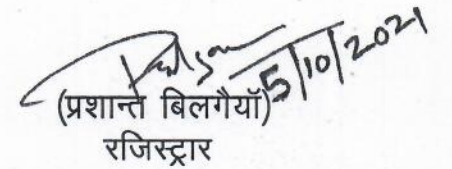 5/10/2021
(प्रशान्त बिलगैयॉ)
रजिस्ट्रार